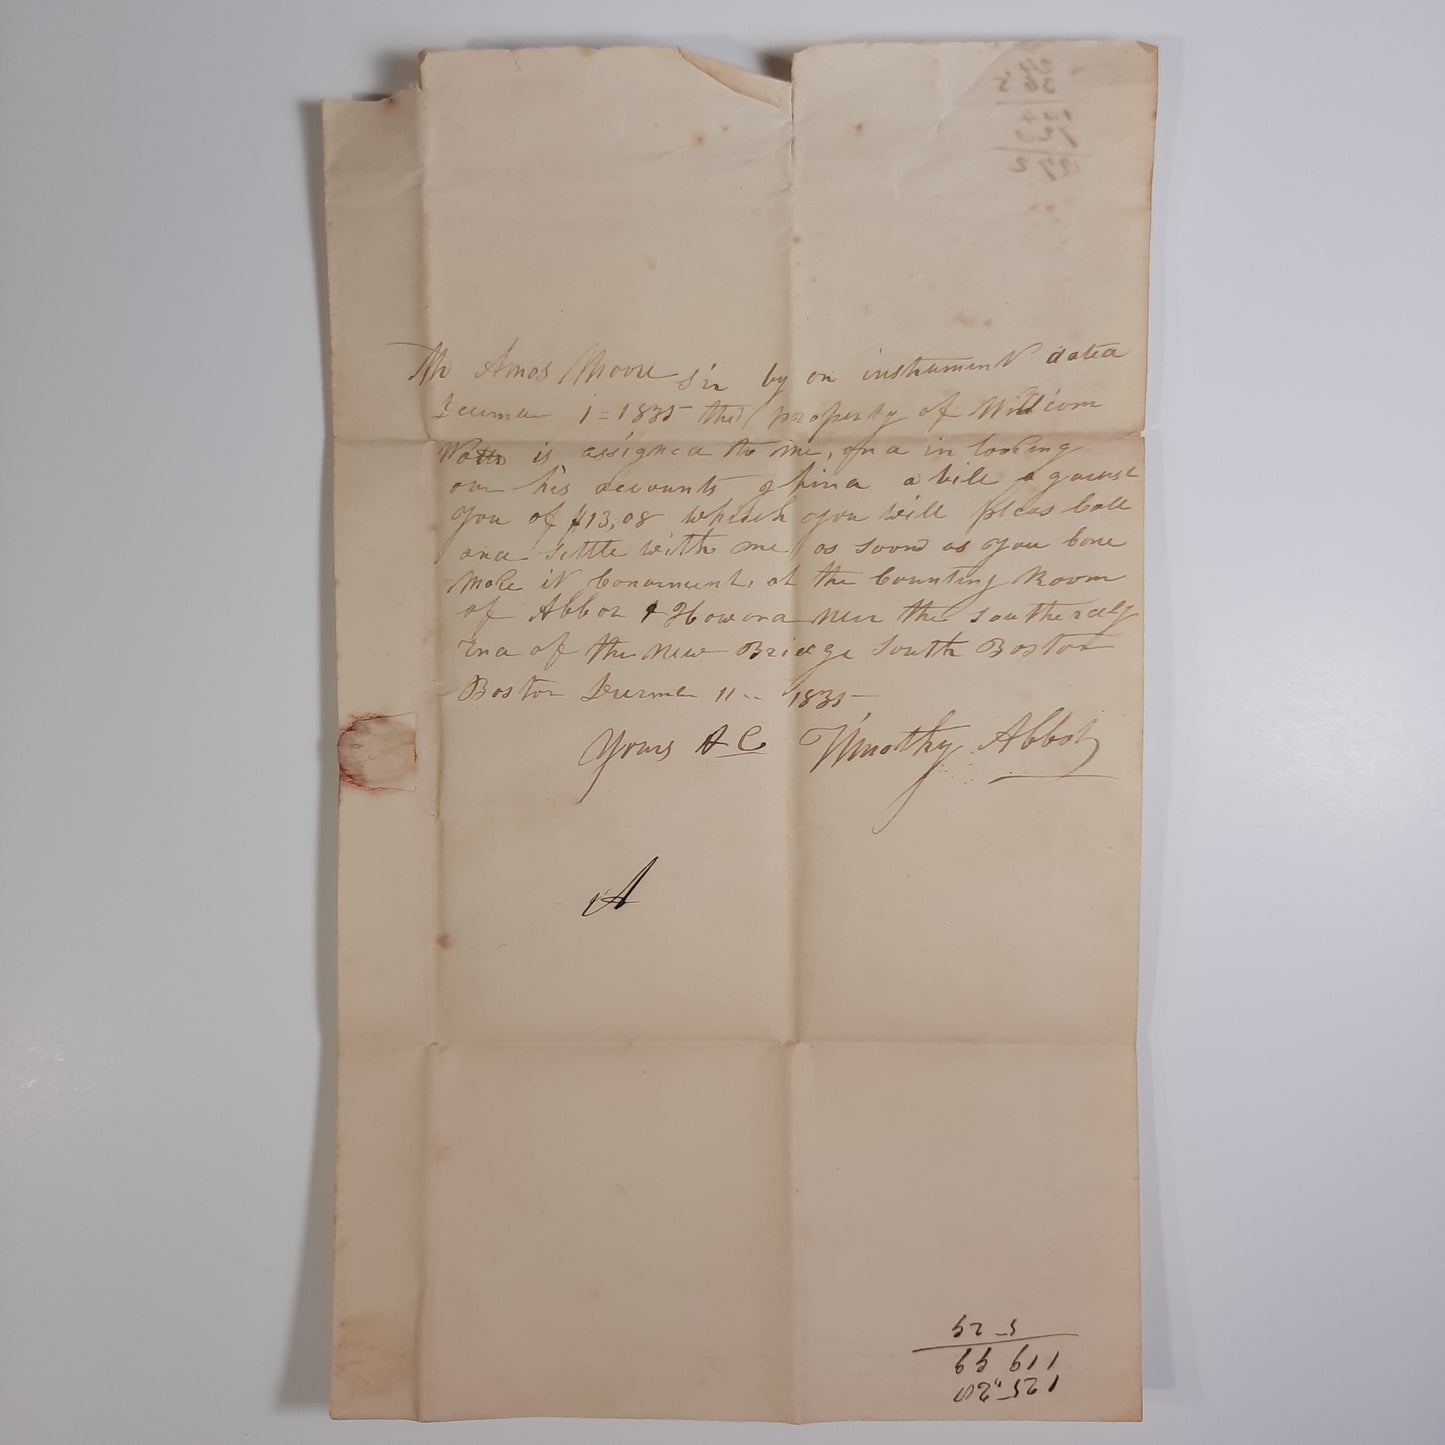 Mr Amos Moore Sir by an instrument dated
December 1 = 1835 the property of William
is assigned to me, and in looking
over his accounts I find a bill against
you of $13,08 which you will pleas Call
and Settle with me as soon as you Cone
Make it Convenient, at the Counting Room
of Abbot & Howard near the Southerdly
End of the New Bridge South Boston
Boston December 11 1835
Yours &C Timothy Abbot
A
125,20
119
5